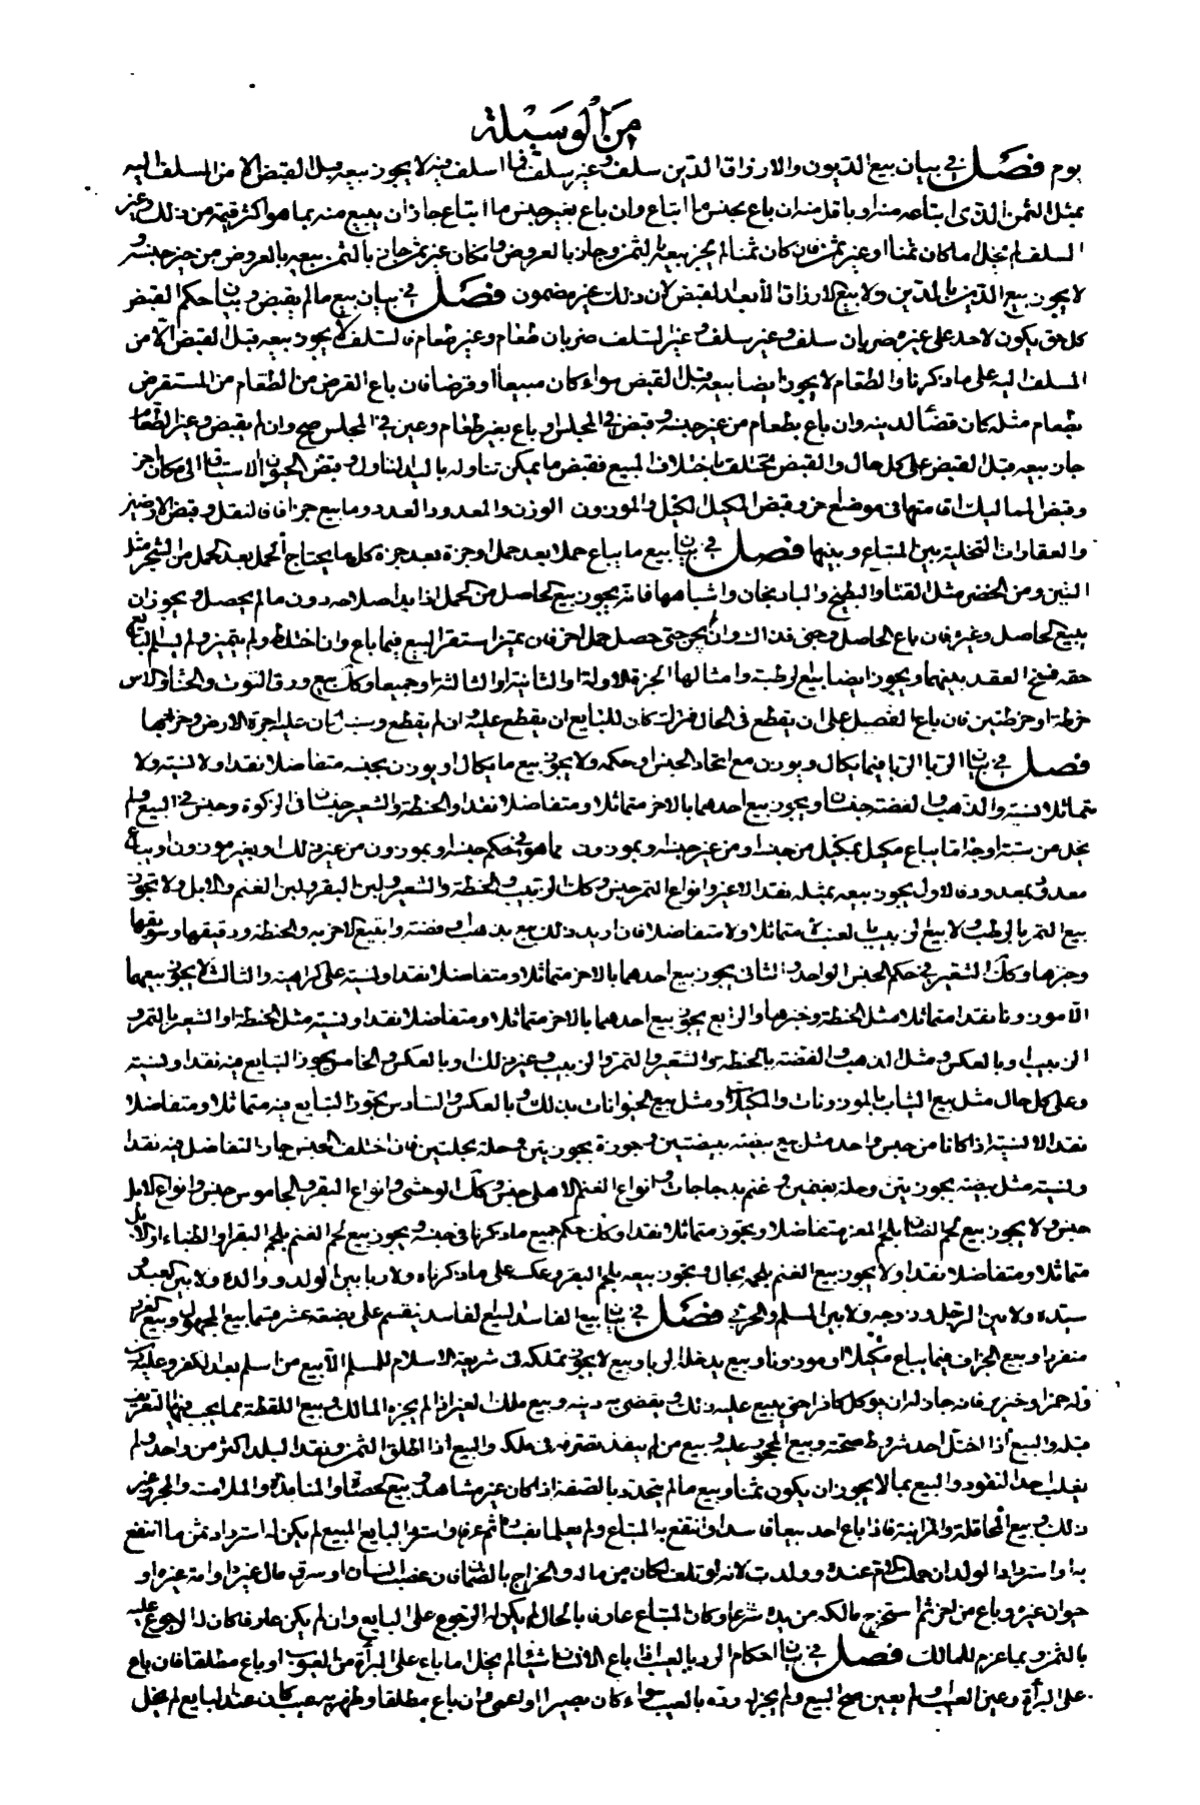 من الوسيلة
يوم فصل في بيان بيع الديون والارزاق الدين سلف وغير سلف فما اسلف فيه لا يجوز بيعه قبل القبض الا من المسلف اليه
بمثل الثمن الذى ابتاعه منه او باقل منه ان باع بجنس ما ابتاع وان باع بغير جنس ما ابتاع جاز ان يبيع منه بما هو اكثر قيمة من ذلك وغير
السلف لم يخل اما كان ثمنا او غير ثمن فان كان ثمنا لم يجز بيعه بالثمن وجاز بالعروض وان كان غير ثمن جاز بالثمن بيعه بالعروض من غير جنسه و
لا يجوز بيع الدين بالدين ولا بيع الارزاق الا بعد القبض لان ذلك غير مضمون فصل في بيان بيع ما لم يقبض وبيان حكم القبض
كل حق يكون لاحد على غيره ضربان سلف وغير سلف وغير السلف ضربان طعام وغير طعام فالسلف لا يجوز بيعه قبل القبض الا من
المسلف اليه على ما ذكرنا والطعام لا يجوز ايضا بيعه قبل القبض سواء كان مبيعا او قرضا فان باع القرض من الطعام من المستقرض
بطعام مثله كان قضأ لدينه وان باع بطعام من غير جنسه وقبض في المجلس او باع بغير طعام وعين في المجلس صح وان لم يقبض وغير الطعام
جاز بيعه قبل القبض على كل حال والقبض يختلف باختلاف المبيع فقبض ما يمكن تناوله باليد التناول وقبض الحيوان الاستياق الى مكان اخر
وقبض المماليك اقامتها في موضع اخر وقبض المكيل الكيل والموزون الوزن والمعدود العدد وما بيع جزافا فالنقل وقبض الارضين
والعقارات التخلية بين المبتاع وبينها فصل في بيان بيع ما يباع حملا بعد حمل او جزة بعد جزة كل ما يحتاج الحمل بعد الحمل من الشجر مثل
التين ومن الخضر مثل القثاء والبطيخ والبادنجان واشباهها فانه يجوز بيع الحاصل من الحمل اذا بدا صلاحه دون ما لم يحصل ويجوز ان
يبيع الحاصل وغيره فان باع الحاصل وجنى فذاك وان لم يجن حتى حصل حمل اخر فان تميز استقر البيع فيما باع وان اختلط ولم يتميز ولم يسلم البايع
حقه فسخ العقد بينهما ويجوز ايضا بيع الرطبة وامثالها الجزة الاولة او الثانية او الثالثة او جميعا وكذلك بيع ورق التوت والحناء والاس
خرطة او خرطتين فان باع الفصيل على ان يقطع في الحال فترك كان للبايع ان يقطع عليه وان لم يقطع وسنبل كان عليه اجرة الارض وخراجها
فصل في بيان الربا الربا فيما يكال ويوزن مع اتحاد الجنس او حكمه ولا يجوز بيع ما يكال او يوزن بجنسه متفاضلا نقدا ولا نسية ولا
متماثلا نسية والذهب والفضة جنسان ويجوز بيع احدهما بالاخر متماثلا ومتفاضلا نقدا والحنطة والشعير جنسان في الزكوة وجنس في البيع ولم
يخل من ستة اوجه اما يباع مكيل بمكيل من جنسه او من غير جنسه او بموزون مما هو في حكم جنسه او بموزون من غير ذلك او بغير موزون او يباع
معدود بمعدود فالاول يجوز بيعه بمثله نقدا لا غير وانواع التمر جنس وكذلك الزبيب والحنطة والشعير ولبن البقر ولبن الغنم والابل ولا يجوز
بيع التمر بالرطب ولا بيع الزبيب بالعنب لا متماثلا ولا متفاضلا فان اريد ذلك بيع بذهب او فضة وابتيع الاخر به والحنطة ودقيقها وسويقها
وخبزها وكذلك الشعير في حكم الجنس الواحد والثاني يجوز بيع احدهما بالاخر متماثلا ومتفاضلا نقدا ونسية على كراهية والثالث لا يجوز بيعهما
الا موزونا نقدا متماثلا مثل الحنطة وخبزها والرابع يجوز بيع احدهما بالاخر متماثلا ومتفاضلا نقدا ونسية مثل الحنطة او الشعير بالتمر و
الزبيب او بالعكس ومثل الذهب والفضة بالحنطة والشعير والتمر والزبيب وغير ذلك او بالعكس والخامس يجوز التبايع فيه نقدا ونسية
وعلى كل حال مثل بيع الثياب بالموزونات والمكيلات ومثل بيع الحيوانات بذلك وبالعكس والسادس يجوز التبايع فيه متماثلا ومتفاضلا
نقدا لا نسية اذا كانا من جنس واحد مثل بيع بيضة ببيضتين وجوزة بجوزتين وحلة بحلتين فان اختلف الجنس جاز التفاضل فيه نقدا
ونسية مثل بيضة بجوزتين وحلة بقميصين وغنم بدجاجات وانواع الغنم الاهلى جنس وكذلك الوحشى وانواع البقر والجاموس جنس وانواع الابل
جنس ولا يجوز بيع لحم الضان بلحم المعز متفاضلا ويجوز متماثلا نقدا وكذلك حكم جميع ما ذكرنا في جنسه ويجوز بيع لحم الغنم بلحم البقر او الظباء او الابل
متماثلا ومتفاضلا نقدا ولا يجوز بيع الغنم بلحمه بحال ويجوز بيعه بلحم البقر وعكسه على ما ذكرناه ولا ربا بين الولد ووالده ولا بين العبد و
سيده ولا بين الرجل وزوجه ولا بين المسلم والحربي فصل في بيان بيع الفاسد البيع الفاسد ينقسم على بضعة عشر قسما بيع المجهول وبيع الغرر
منفردا وبيع الجزاف فيما يباع مكيلا او موزونا وبيع يدخله الربا وبيع لا يجوز تملكه في شريعة الاسلام للمسلم الا بيع من اسلم بعد الكفر وعليه دين
وله خمر او خنزير فانه جاز له ان يوكل كافرا حتى يبيع عليه ذلك ويقضى به دينه وبيع ملك الغير اذا لم يجزه المالك وبيع اللقطة مما يجب فيها التعريف
قبله والبيع اذا اختل احد شروط صحته وبيع المحجور عليه وبيع من لم ينفذ تصرفه في ملكه والبيع اذا اطلق الثمن ونقد البلد اكثر من واحد ولم
يغلب احد النقود والبيع بما لا يجوز ان يكون ثمنا وبيع ما لم يتحدد بالصفة اذا كان غير مشاهد وبيع الحصاة والمنابذة والملامسة والمجر وغير
ذلك وبيع المحاقلة والمزابنة فاذا باع احد بيعا فاسدا وانتفع به المبتاع ولم يعلما بفساده ثم عرفا واسترد البايع المبيع لم يكن له استرداد ثمن ما انتفع
به او استرداد الولد ان حملت الام عنده وولدت لانه لو تلف لكان من ماله والخراج بالضمان فان غصب انسان او سرق مال غيره او امة غيره او
حيوان غيره وباع من اخر ثم استخرج مالكه من يده شرعا وكان المبتاع عارفا بالحال لم يكن له الرجوع على البايع وان لم يكن عارفا كان له الرجوع عليه
بالثمن وبما غرم للمالك فصل في بيان احكام الرد بالعيب اذا باع الانسان شيئا لم يخل اما باع على البرأة من العيوب او باع مطلقا فان باع
على البرأة وعين العيب او لم يعين صح البيع ولم يجز له رده بالعيب سواء كان بصيرا او اعمى وان باع مطلقا وظهر به عيب كان عند البايع لم يخل